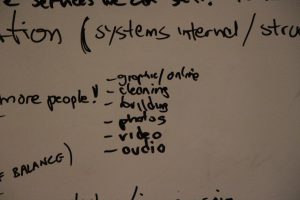 services we can sell?
ation (systems internal / stru
- graphic/online
more people! - cleaning
- building
- photos
- video
- audio
F BALANCE)